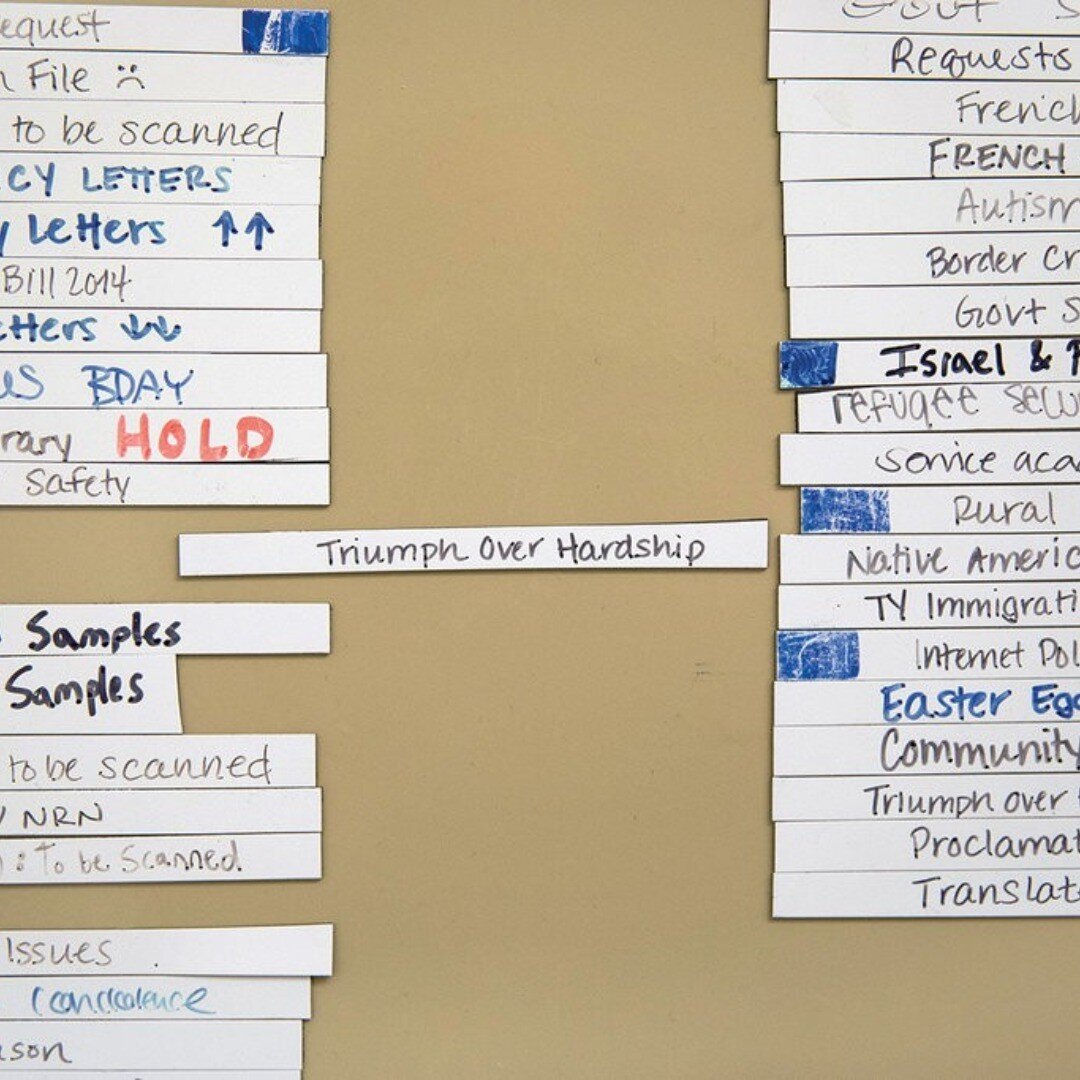 equest
File
to be scanned
CY LETTERS
y Letters ↑↑
Bill 2014
etters ↓↓
us BDAY
rary HOLD
Safety
Triumph Over Hardship
Samples
Samples
to be scanned
NRN
: To be Scanned.
Issues
Condolence
ason
Govt S
Requests
French
FRENCH
Autism
Border Cr
Govt S
Israel & P
refugee secu
Service aca
Rural
Native Americ
TY Immigrati
Internet Pol
Easter Egg
Community
Triumph over
Proclamat
Translat